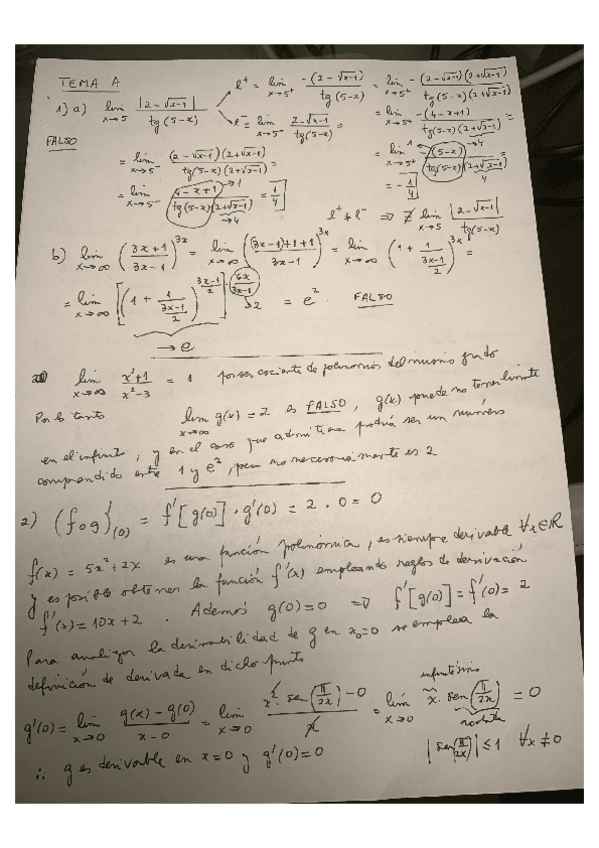 TEMA A
1) a) lim x→5 |2-√x-1| / tg(5-x)
l⁺ = lim x→5⁺ -(2-√x-1) / tg(5-x) = lim x→5⁺ -(2-√x-1)(2+√x-1) / tg(5-x)(2+√x-1) =
FALSO
l⁻ = lim x→5⁻ 2-√x-1 / tg(5-x) =
= lim x→5⁺ -(4-x+1) / tg(5-x)(2+√x-1) =
= lim x→5⁻ (2-√x-1)(2+√x-1) / tg(5-x)(2+√x-1) =
= lim x→5⁺ -(5-x) / tg(5-x)(2+√x-1) =
= lim x→5⁻ 4-x+1 / tg(5-x)(2+√x-1) = 1/4
= -1/4
l⁺ ≠ l⁻ ⇒ ∄ lim x→5 |2-√x-1| / tg(5-x)
b) lim x→∞ (3x+1 / 3x-1)^3x = lim x→∞ ((3x-1)+1+1 / 3x-1)^3x = lim x→∞ (1 + 1 / (3x-1 / 2))^3x =
= lim x→∞ [(1 + 1 / (3x-1 / 2))^(3x-1 / 2)]^(6x / 3x-1) →2 = e² . FALSO
→ e
lim x→∞ x²+1 / x²-3 = 1 por ser cociente de polinomios del mismo grado
Por lo tanto lim x→∞ g(x) = 2 es FALSO, g(x) puede no tener límite
en el infinito, y en el caso que admitiera podría ser un número
comprendido entre 1 y e², pero no necesariamente es 2
2) (f o g)'(0) = f'[g(0)] · g'(0) = 2 · 0 = 0
f(x) = 5x²+2x es una función polinómica, es siempre derivable ∀x∈ℝ
y es posible obtener la función f'(x) empleando reglas de derivación
f'(x) = 10x + 2 . Además g(0) = 0 ⇒ f'[g(0)] = f'(0) = 2
Para analizar la derivabilidad de g en x₀=0 se emplea la
definición de derivada en dicho punto
g'(0) = lim x→0 g(x) - g(0) / x-0 = lim x→0 x² · sen(π/2x) - 0 / x = lim x→0 x · sen(π/2x) = 0
infinitésimo
acotada
∴ g es derivable en x=0 y g'(0) = 0
|sen(π/2x)| ≤ 1 ∀x ≠ 0